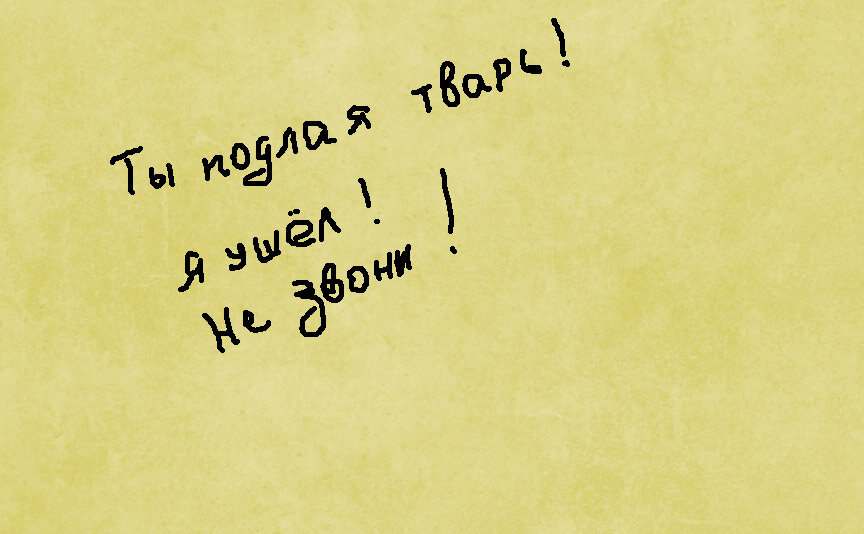 Ты подлая тварь!
я ушёл!
Не звони!